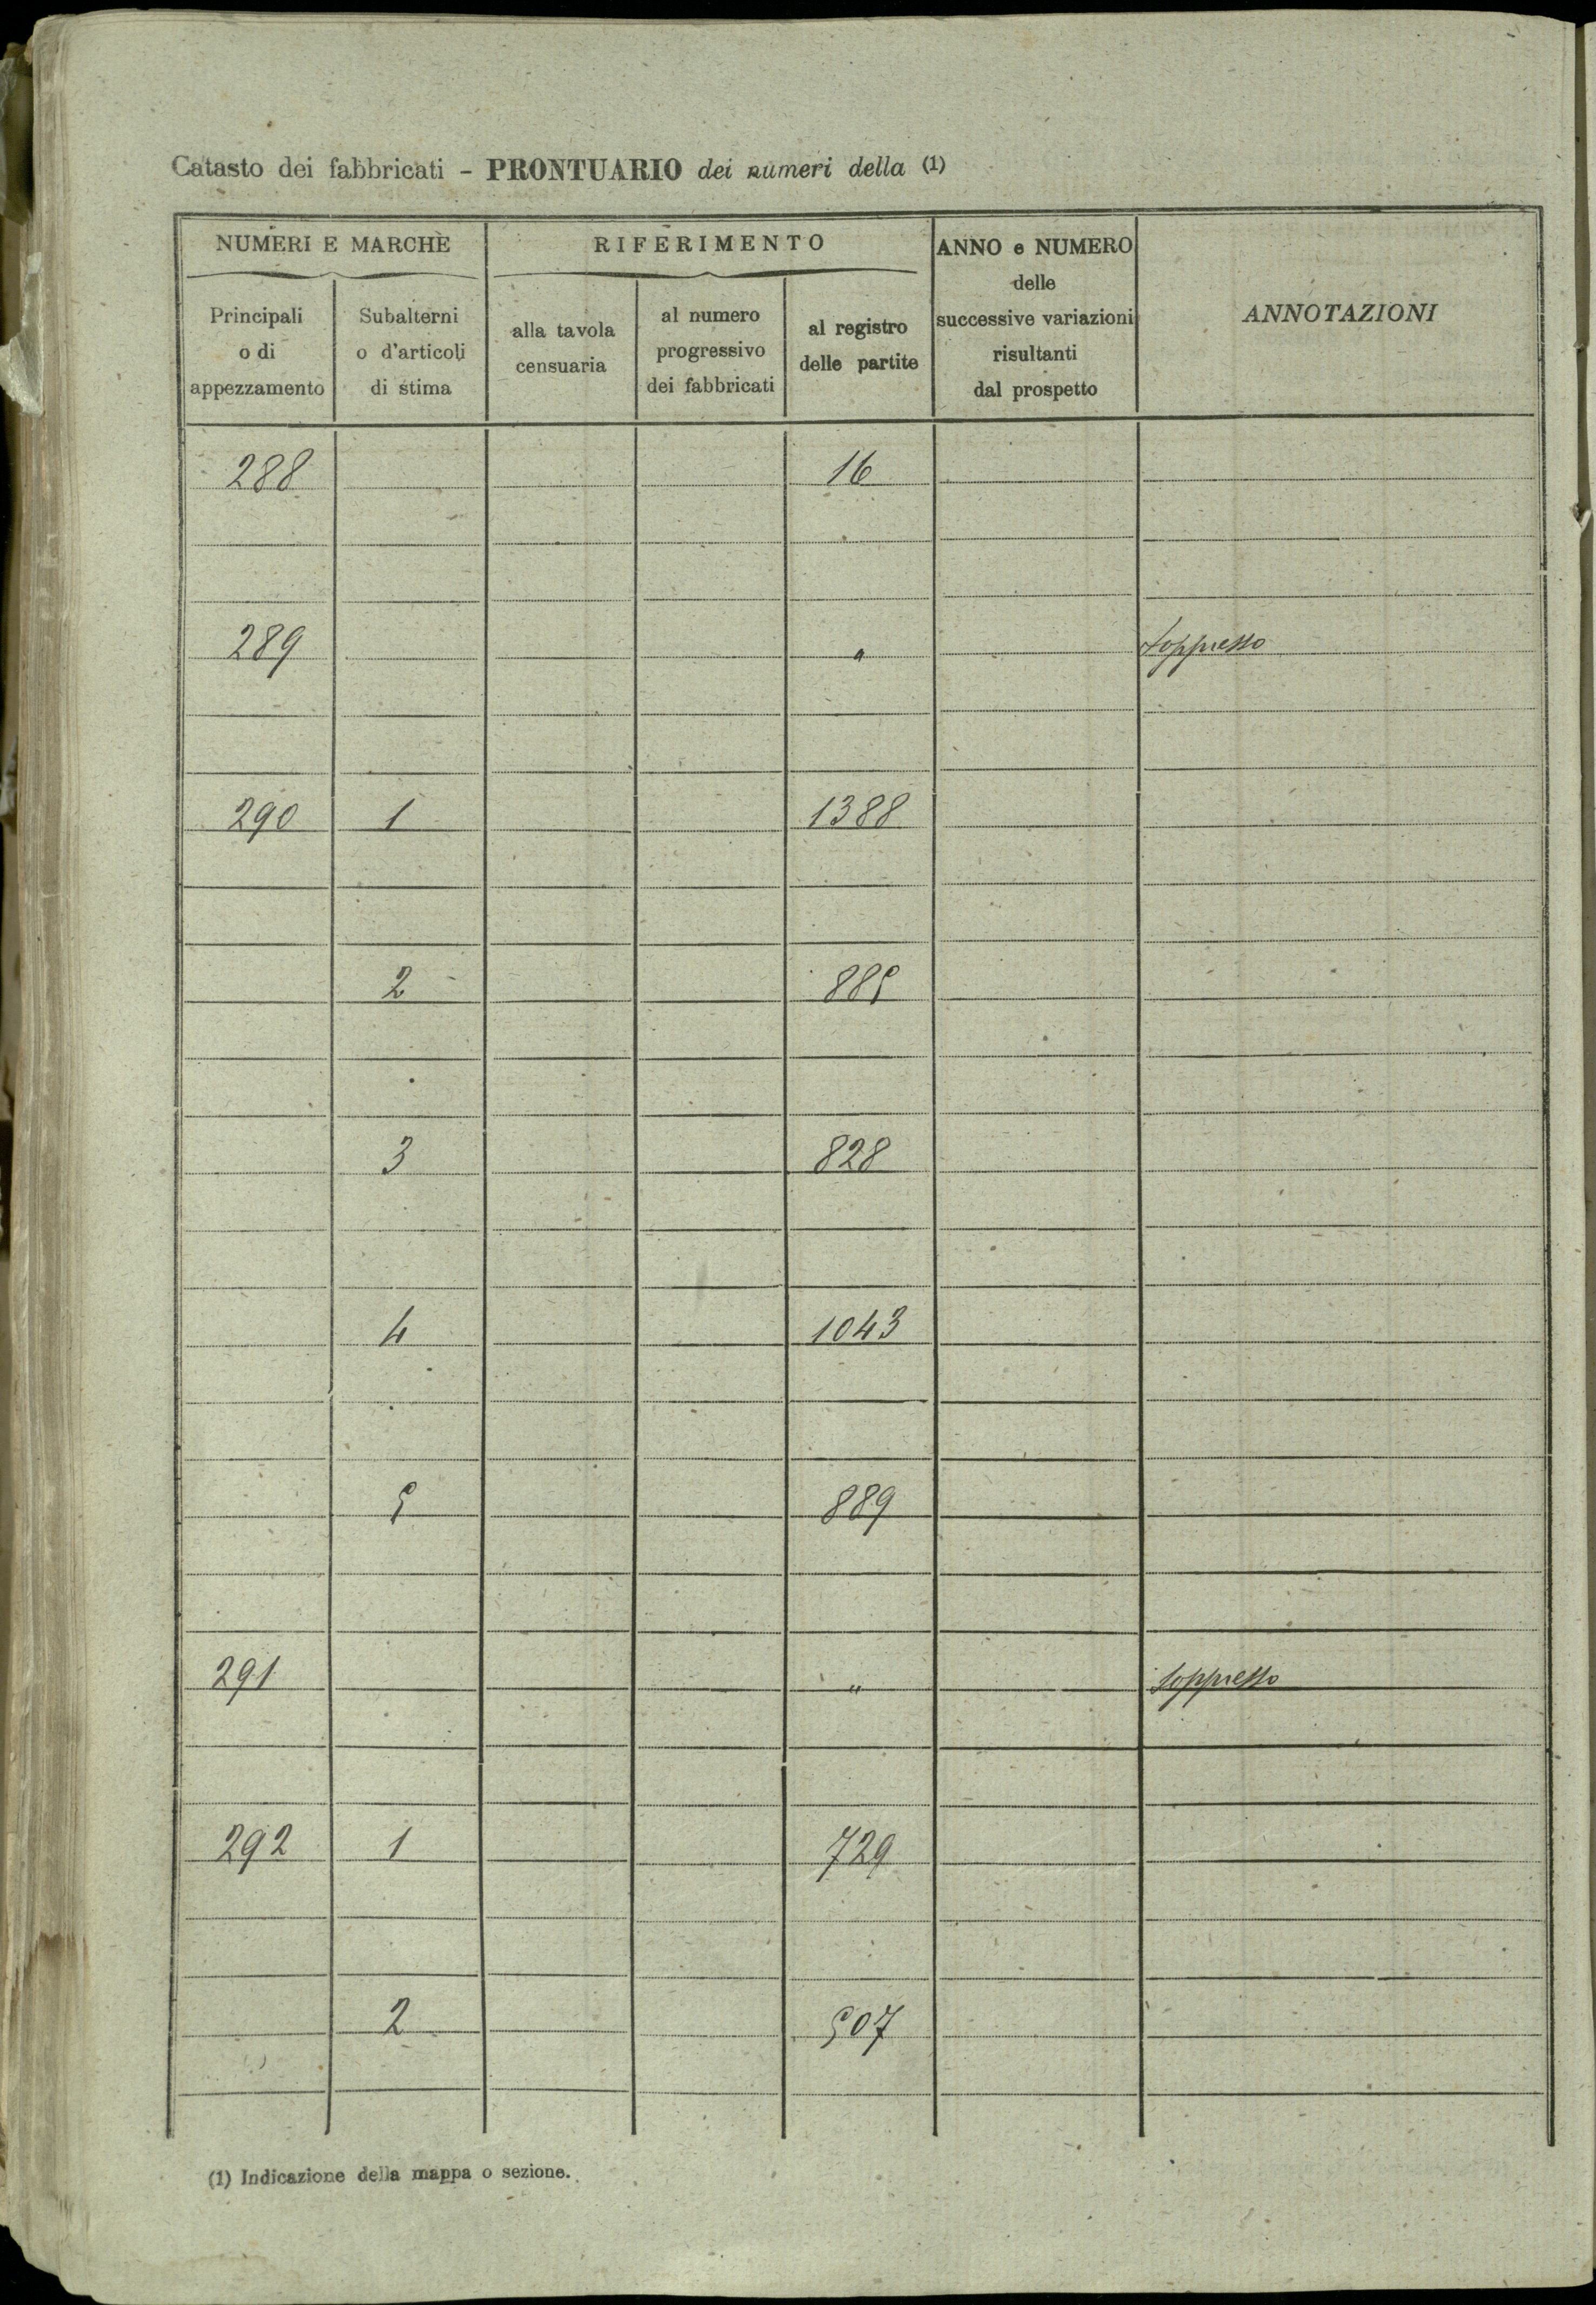 Catasto dei fabbricati - PRONTUARIO dei numeri della (1)
NUMERI E MARCHE
RIFERIMENTO
ANNO e NUMERO
delle
successive variazioni
risultanti
dal prospetto
ANNOTAZIONI
Principali
o di
appezzamento
Subalterni
o d'articoli
di stima
alla tavola
censuaria
al numero
progressivo
dei fabbricati
al registro
delle partite
288 16
289 " soppresso
290 1 1388
2 885
3 828
4 1043
5 889
291 " soppresso
292 1 729
2 507
(1) Indicazione della mappa o sezione.